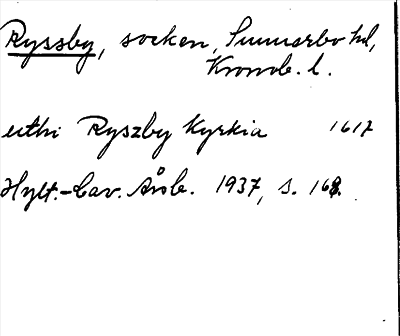 Ryssby, socken, Sunnerbo hd,
Kronob. l.
uthi Ryszby Kyrkia 1617
Hylt.-Cav. Årsb. 1937, s. 168.